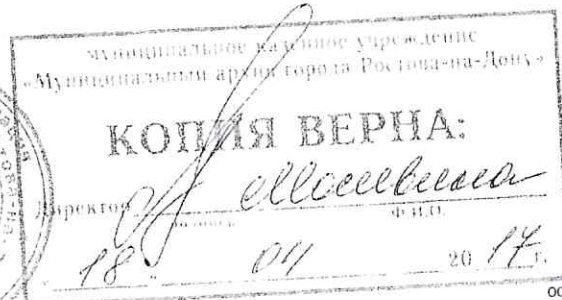 муниципальное казенное учреждение
«Муниципальный архив города Ростова-на-Дону»
КОПИЯ ВЕРНА:
Директор
Ф.И.О.
"18" 04 2017 г.